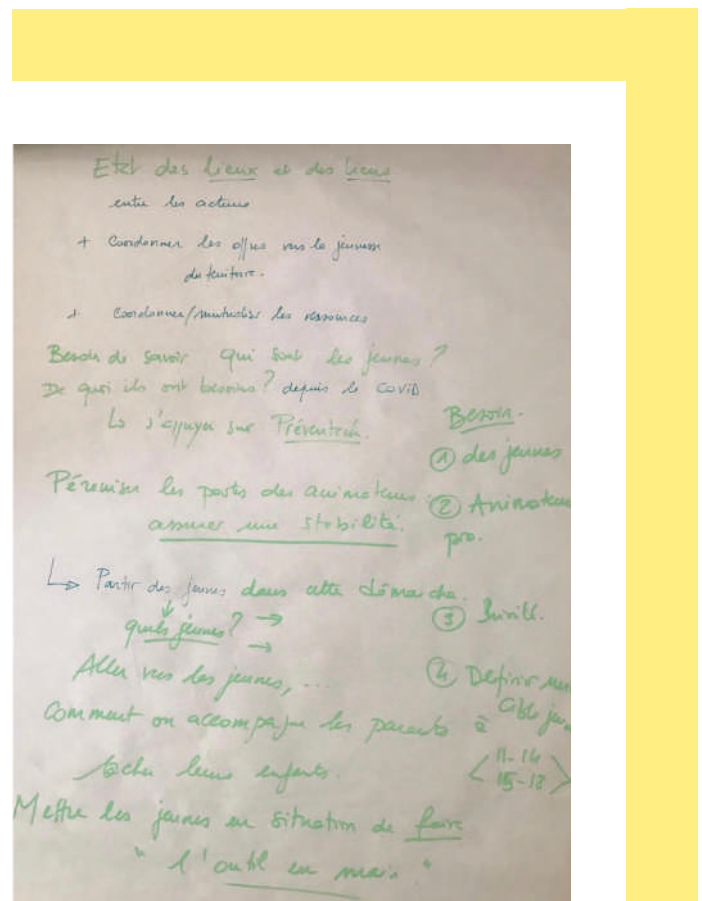 Etat des lieux et des liens
entre les acteurs
+ Coordonner les offres vers la jeunesse
du territoire.
+ Coordonner/mutualiser les ressources
Besoin de savoir qui sont les jeunes ?
De quoi ils ont besoins ? depuis le COVID
↳ s'appuyer sur
Pérenniser les posts des animateurs :
assurer une stabilité.
↳ Partir des jeunes dans cette démarche.
quels jeunes ? →
→
Aller vers les jeunes, ...
Comment on accompagne les parents à
lâcher leurs enfants.
Mettre les jeunes en situation de faire
" l'outil en main "
Besoin.
① des jeunes
② Animateur
pro.
③
④ Définir une
cible
< 11-14
15-18 >